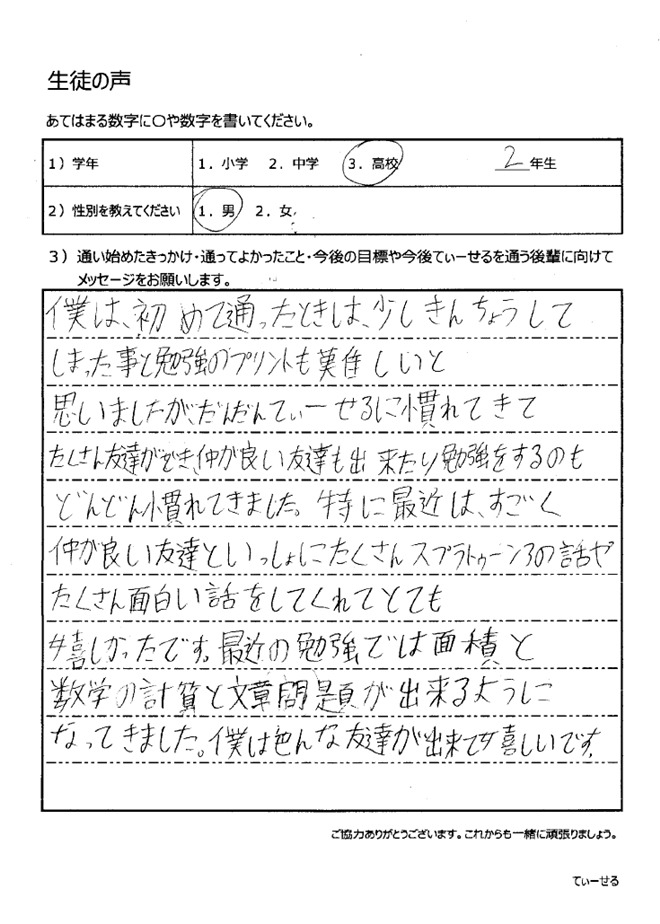 生徒の声
あてはまる数字に〇や数字を書いてください。
1）学年 1．小学 2．中学 3．高校 2年生
2）性別を教えてください 1．男 2．女
3）通い始めたきっかけ・通ってよかったこと・今後の目標や今後てぃーせるを通う後輩に向けて
メッセージをお願いします。
僕は、初めて通ったときは、少しきんちょうして
しまった事と勉強のプリントも難しいと
思いましたが、だんだんてぃーせるに慣れてきて
たくさん友達ができ、仲が良い友達も出来たり勉強をするのも
どんどん慣れてきました。特に最近は、すごく
仲が良い友達といっしょにたくさんスプラトゥーン3の話や
たくさん面白い話をしてくれてとても
嬉しかったです。最近の勉強では面積と
数学の計算と文章問題が出来るように
なってきました。僕は色んな友達が出来て嬉しいです。
ご協力ありがとうございます。これからも一緒に頑張りましょう。
てぃーせる